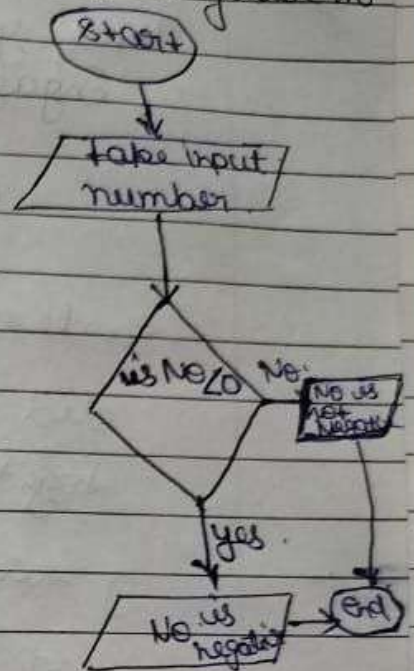 Start
take input
number
is No<0
No.
No is
not
Negative
yes.
No is
negative
end